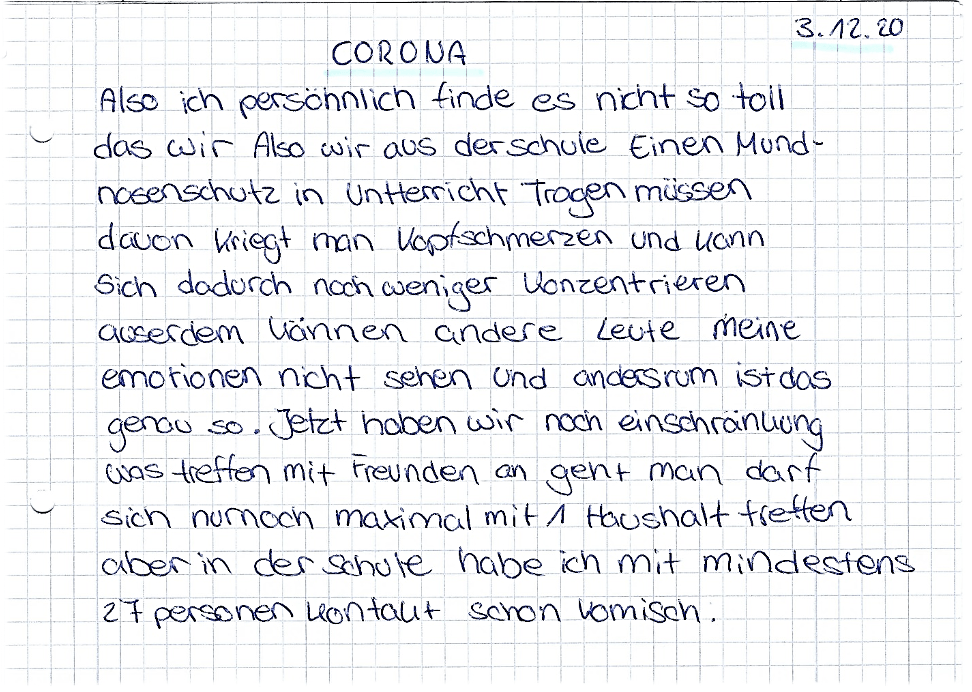 3.12.20
CORONA
Also ich persöhnlich finde es nicht so toll
das wir Also wir aus der schule Einen Mund-
nasenschutz in Untterricht Tragen müssen
davon kriegt man Kopfschmerzen und kann
sich dadurch noch weniger Konzentrieren
auserdem können andere Leute meine
emotionen nicht sehen und andersrum ist das
genau so. Jetzt haben wir noch einschränkung
was treffen mit Freunden an geht man darf
sich nurnoch maximal mit 1 Haushalt treffen
aber in der schule habe ich mit mindestens
27 personen kontakt schon komisch.